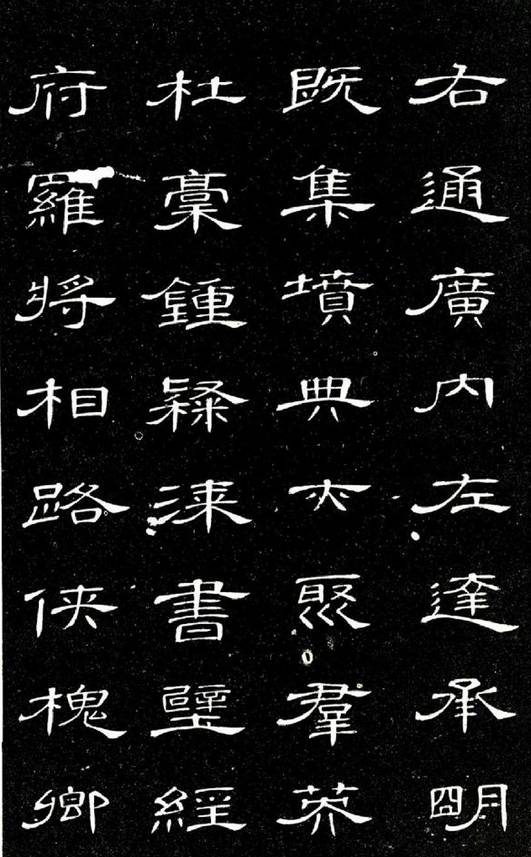 右通廣內左達承明
既集墳典亦聚羣英
杜稾鍾隸漆書壁經
府羅將相路俠槐卿